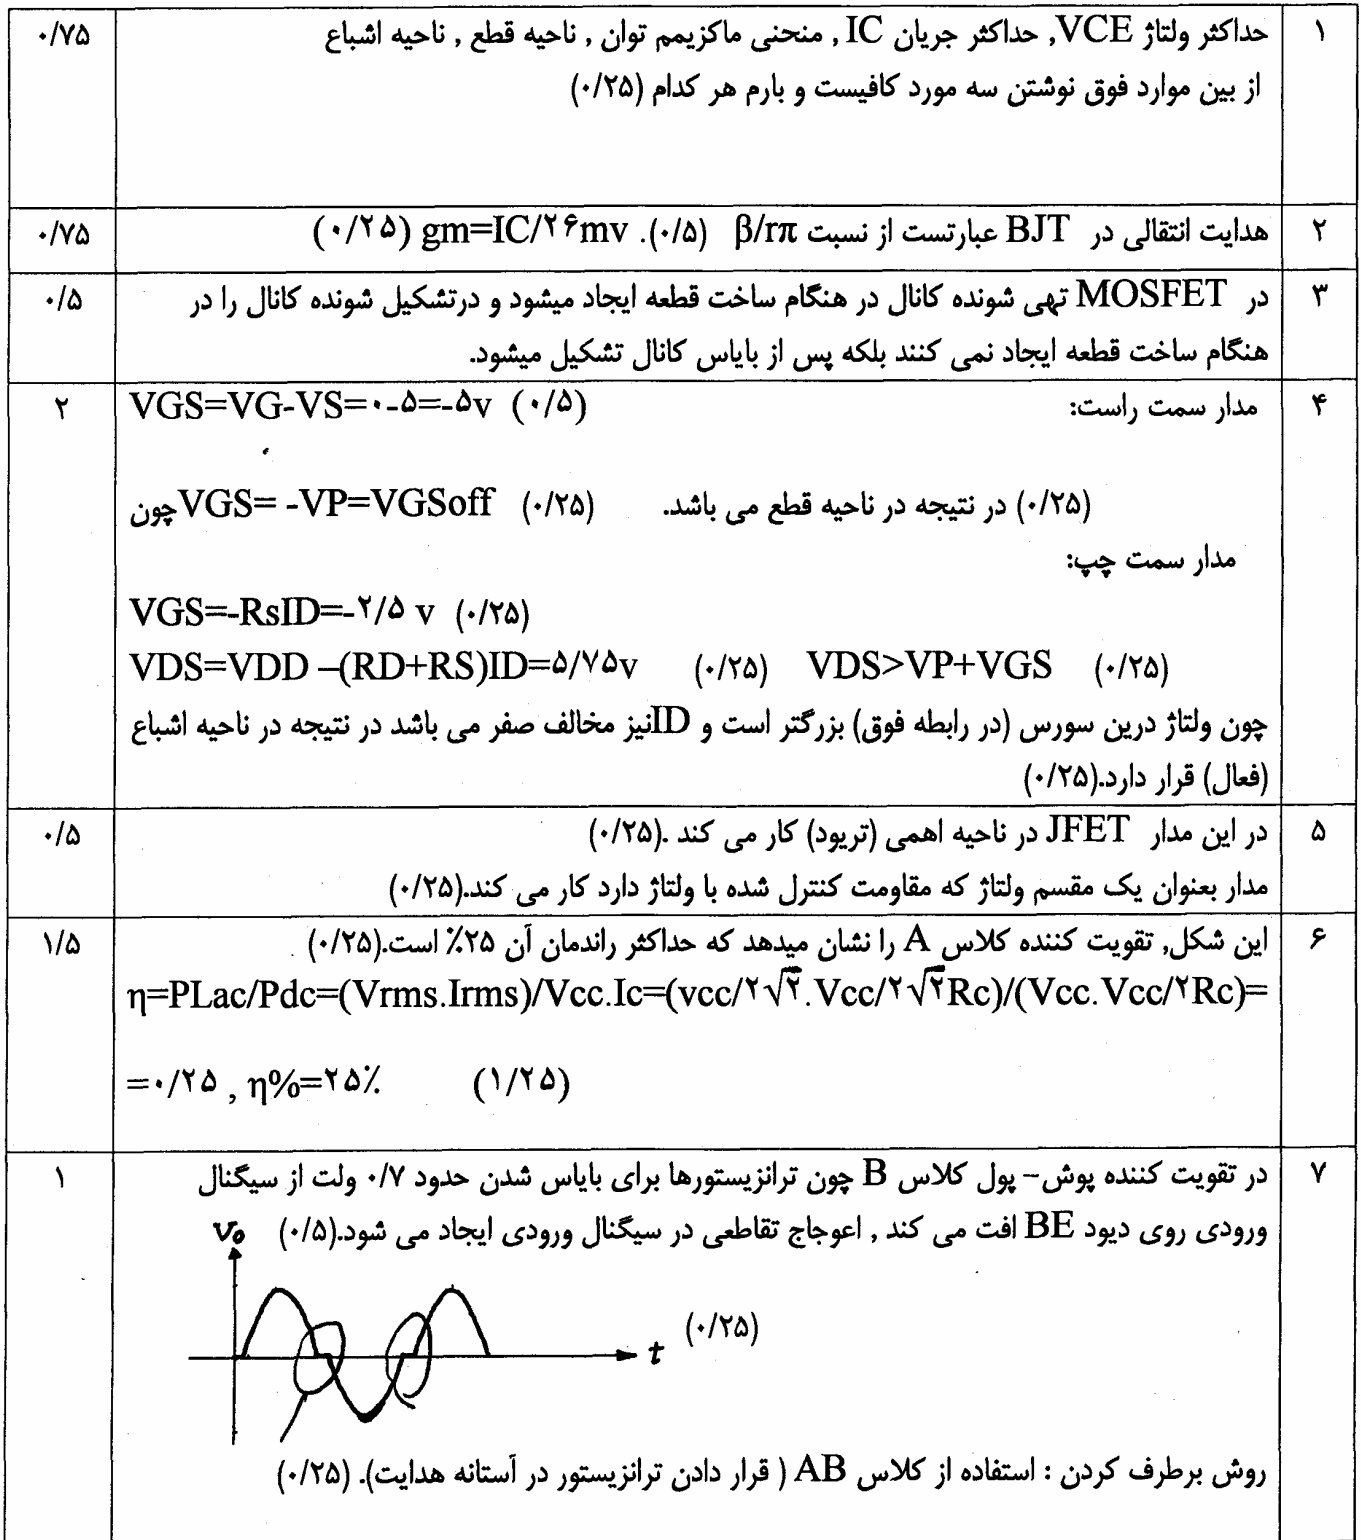 ۱ حداکثر ولتاژ VCE, حداکثر جریان IC , منحنی ماکزیمم توان , ناحیه قطع , ناحیه اشباع ۰/۷۵
از بین موارد فوق نوشتن سه مورد کافیست و بارم هر کدام (۰/۲۵)
۲ هدایت انتقالی در BJT عبارتست از نسبت β/rπ (۰/۵). gm=IC/۲۶mv (۰/۲۵) ۰/۷۵
۳ در MOSFET تهی شونده کانال در هنگام ساخت قطعه ایجاد میشود و درتشکیل شونده کانال را در ۰/۵
هنگام ساخت قطعه ایجاد نمی کنند بلکه پس از بایاس کانال تشکیل میشود.
۴ مدار سمت راست: VGS=VG-VS=۰-۵=-۵v (۰/۵) ۲
چون VGS= -VP=VGSoff (۰/۲۵) در نتیجه در ناحیه قطع می باشد. (۰/۲۵)
مدار سمت چپ:
VGS=-RsID=-۲/۵ v (۰/۲۵)
VDS=VDD –(RD+RS)ID=۵/۷۵v (۰/۲۵) VDS>VP+VGS (۰/۲۵)
چون ولتاژ درین سورس (در رابطه فوق) بزرگتر است و IDنیز مخالف صفر می باشد در نتیجه در ناحیه اشباع
(فعال) قرار دارد.(۰/۲۵)
۵ در این مدار JFET در ناحیه اهمی (تریود) کار می کند .(۰/۲۵) ۰/۵
مدار بعنوان یک مقسم ولتاژ که مقاومت کنترل شده با ولتاژ دارد کار می کند.(۰/۲۵)
۶ این شکل, تقویت کننده کلاس A را نشان میدهد که حداکثر راندمان آن ۲۵٪ است.(۰/۲۵) ۱/۵
η=PLac/Pdc=(Vrms.Irms)/Vcc.Ic=(vcc/۲√۲.Vcc/۲√۲Rc)/(Vcc.Vcc/۲Rc)=
=۰/۲۵ , η%=۲۵٪ (۱/۲۵)
۷ در تقویت کننده پوش- پول کلاس B چون ترانزیستورها برای بایاس شدن حدود ۰/۷ ولت از سیگنال ۱
ورودی روی دیود BE افت می کند , اعوجاج تقاطعی در سیگنال ورودی ایجاد می شود.(۰/۵)
vo
(۰/۲۵)
t
روش برطرف کردن : استفاده از کلاس AB ( قرار دادن ترانزیستور در آستانه هدایت). (۰/۲۵)